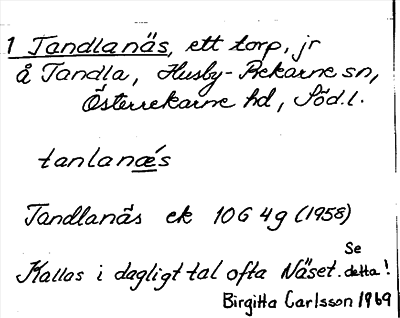 1 Tandlanäs, ett torp, jr
å Tandla, Husby-Rekarne sn,
Österrekarne hd, Söd.l.
tanlanæ´s
Tandlanäs ek 10G 4g (1958)
Kallas i dagligt tal ofta Näset. Se detta!
Birgitta Carlsson 1969